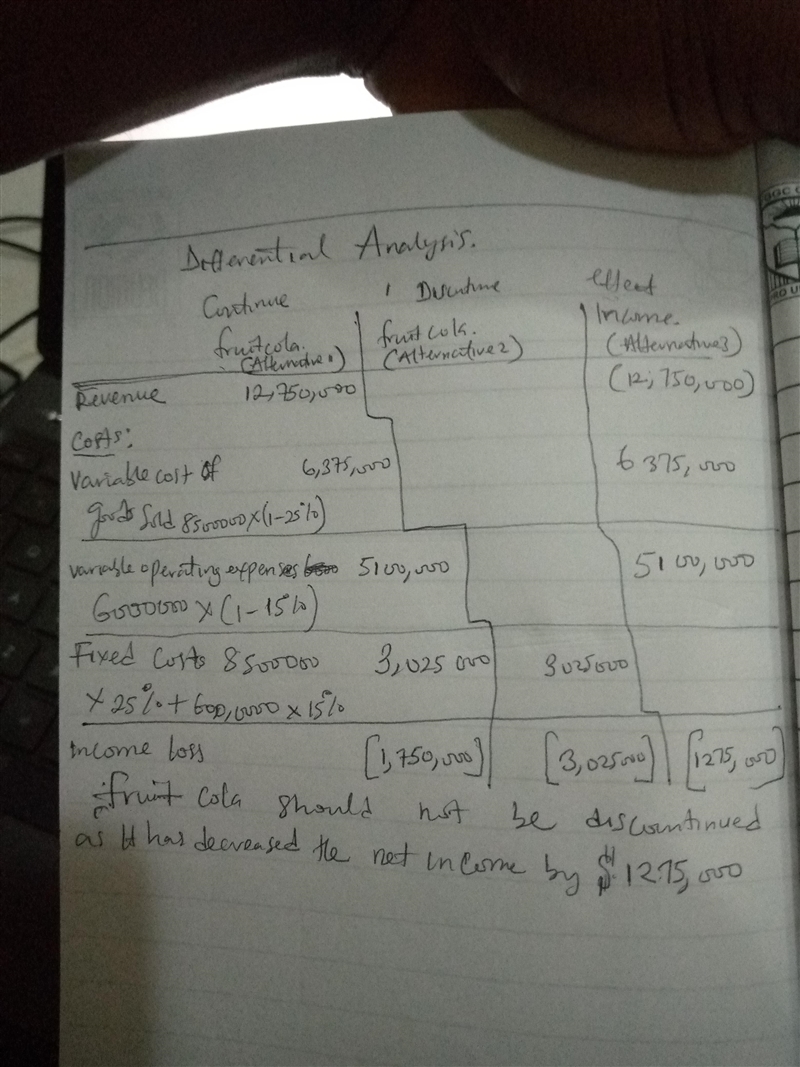 Differential Analysis.
Continue Discontinue effect
fruitcola. fruitcola. Income.
(Alternative 1) (Alternative 2) (Alternative 3)
Revenue 12,750,000 (12,750,000)
Costs:
Variable cost of 6,375,000 6 375,000
goods sold 8500000 x (1-25%)
variable operating expenses 5100,000 5100,000
6000000 x (1-15%)
Fixed Costs 8500000 3,025 000 3025000
x 25% + 600,0000 x 15%
Income loss [1,750,000] [3,025000] [1275,000]
fruit cola should not be discontinued
as it has decreased the net income by $ 1275,000